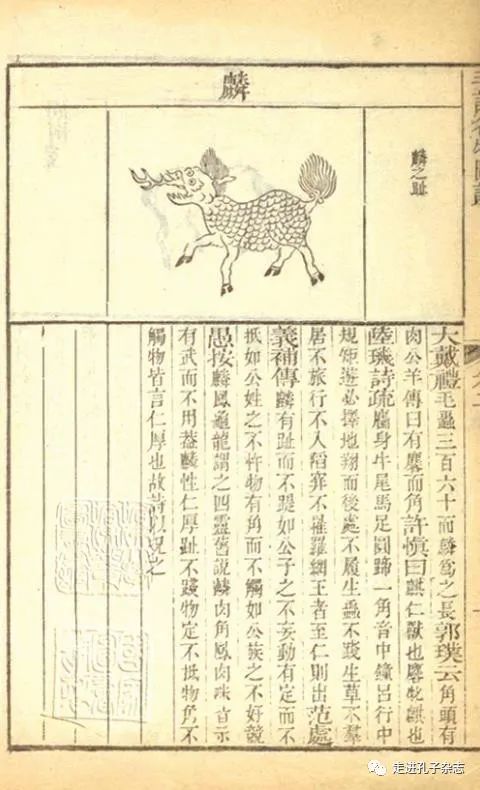 麟
麟之趾
大戴禮毛蟲三百六十而麟爲之長郭璞云角頭有
肉公羊傳曰有麏而角許愼曰麒仁獸也麐牝麒也
陸璣詩疏麕身牛尾馬足圓蹄一角音中鐘呂行中
規矩遊必擇地翔而後處不履生蟲不踐生草不羣
居不旅行不入穽不罹羅網王者至仁則出范處
義補傳麟有趾而不踶如公子之不妄動有定而不
抵如公姓之不忤物有角而不觸如公族之不好競
愚按麟鳳龜龍謂之四靈舊說麟肉角鳳肉咮皆示
有武而不用葢麟性仁厚趾不踐物定不抵物角不
觸物皆言仁厚也故詩以況之
走进孔子杂志